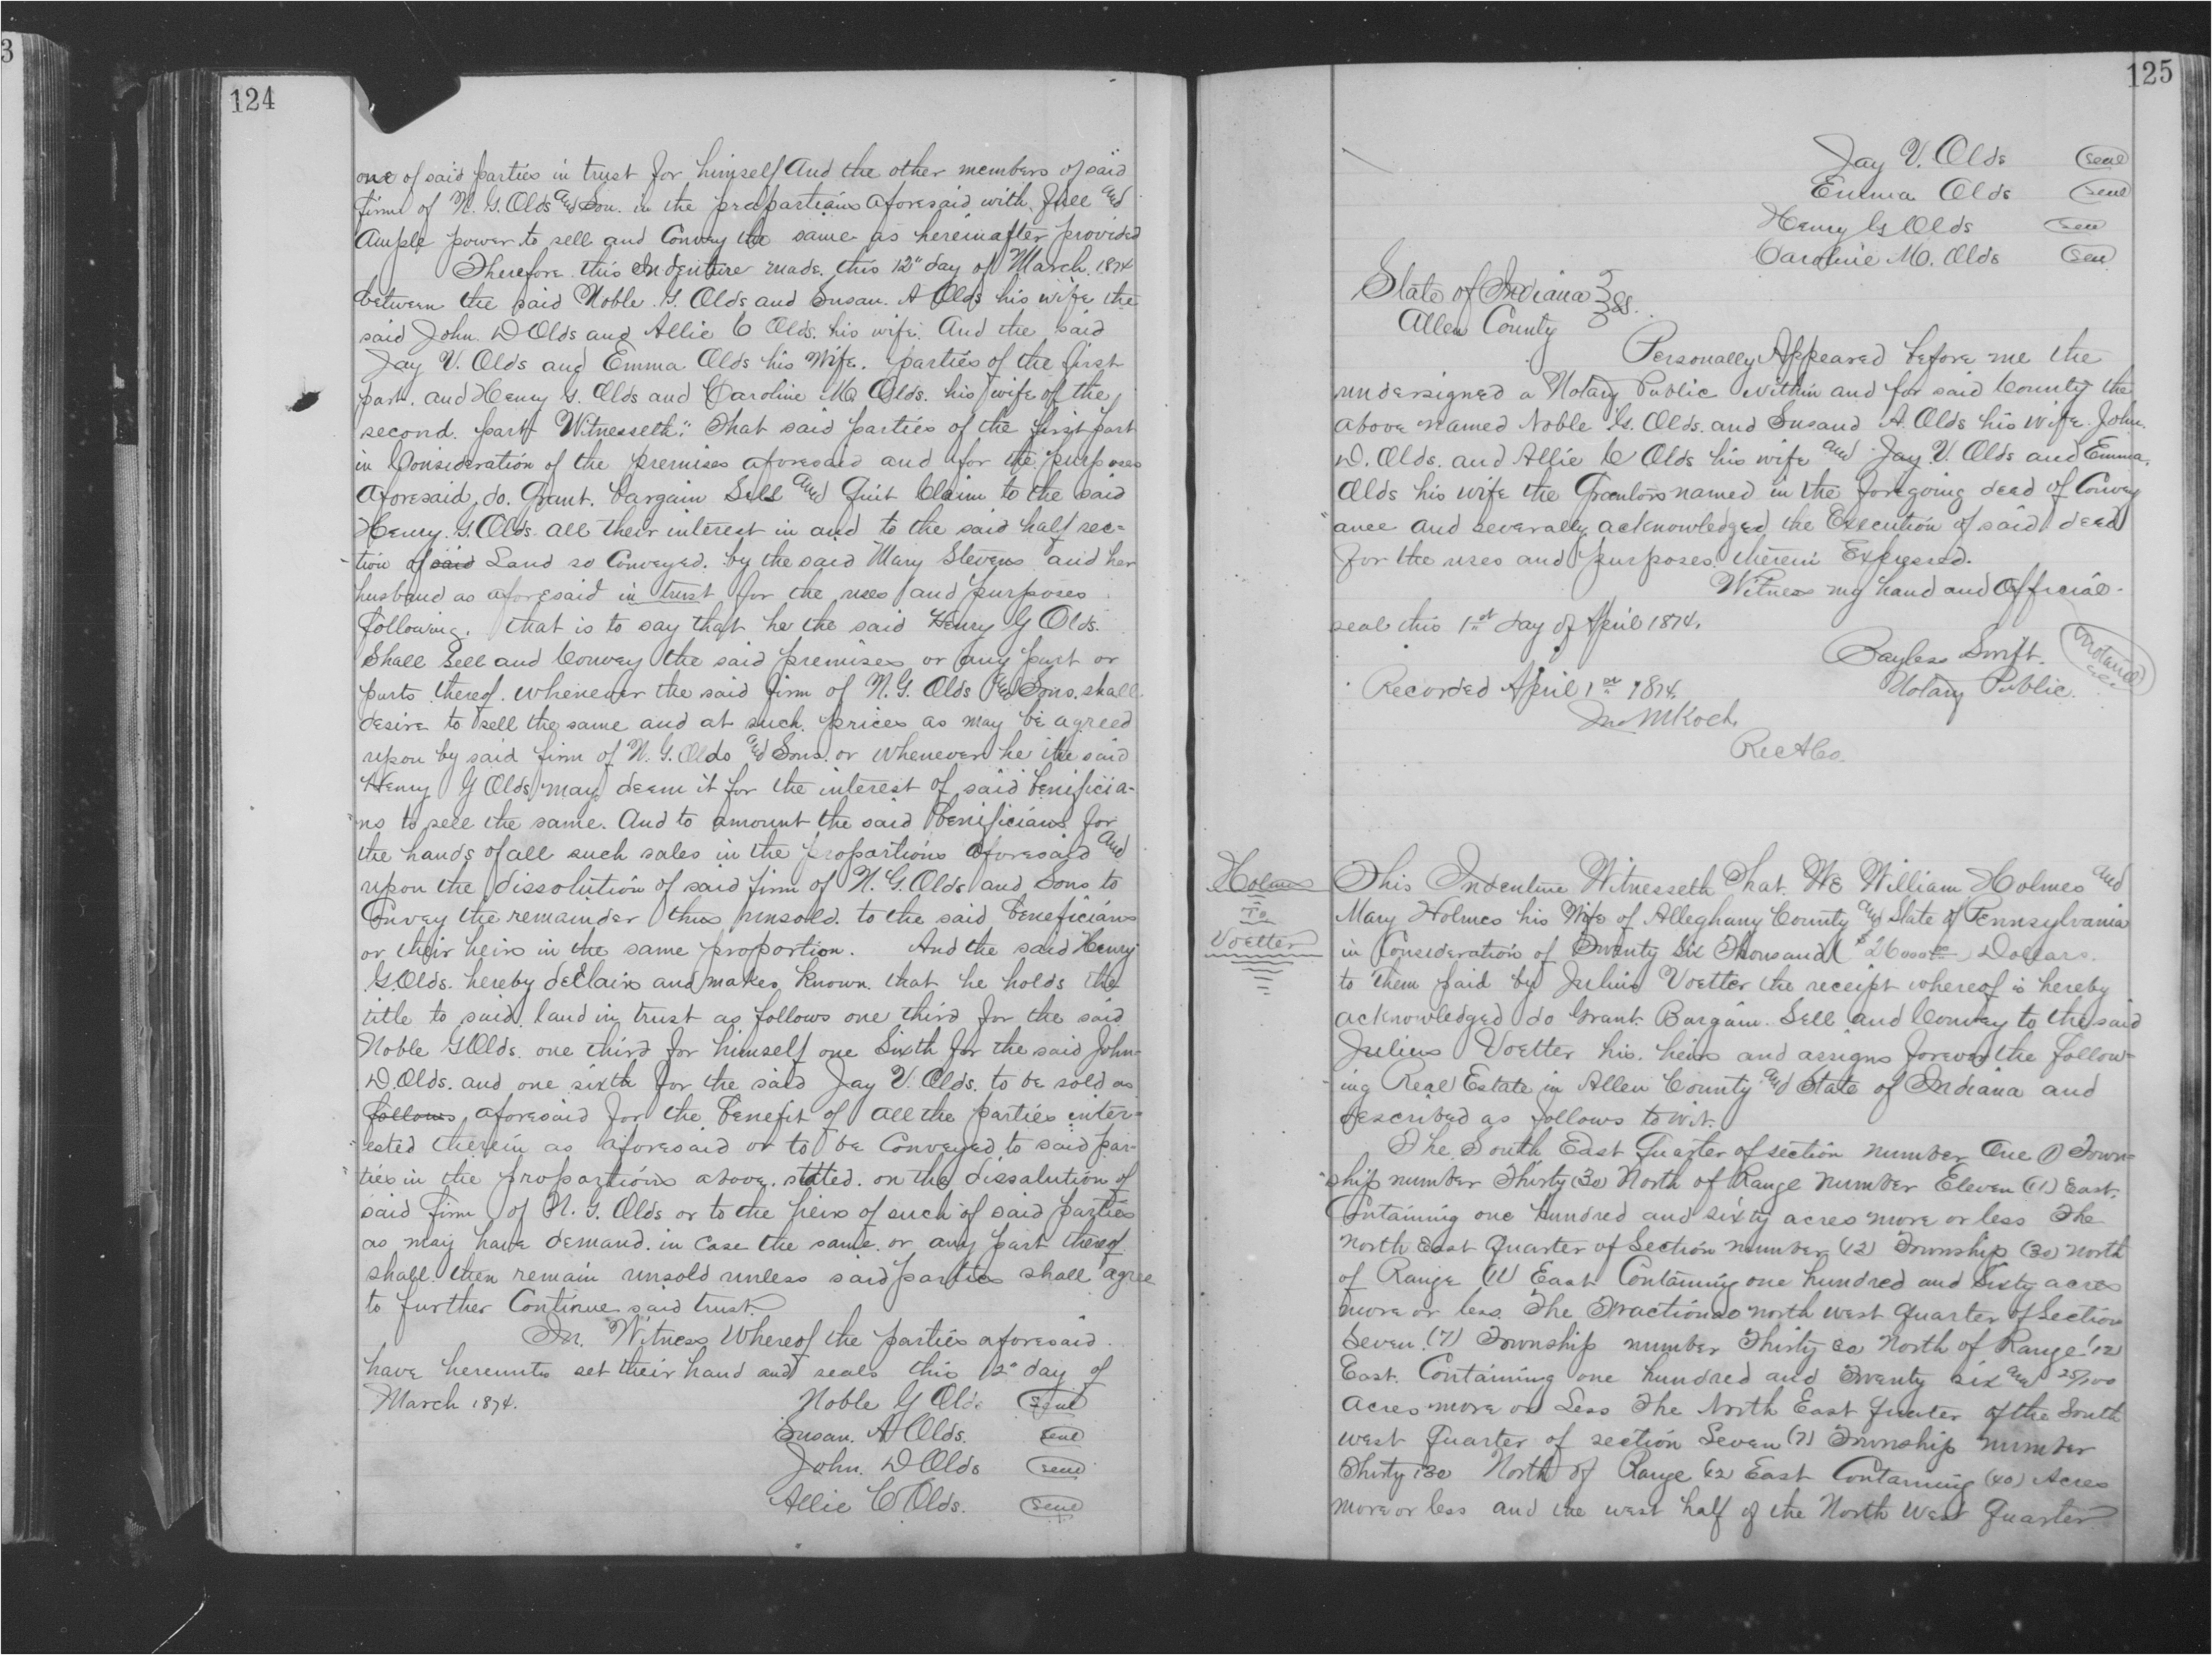 3
124
one of said parties in trust for himself And the other members of said
firm of N. G. Olds and Son. in the propartions aforesaid with full and
Ample power to sell and Convey the same as hereinafter provided
Therefore this Indenture made. this 12" day of March. 1874
between the said Noble. G. Olds and Susan. A Olds his wife the
said John. D Olds and Allie C Olds. his wife. And the said
Jay V. Olds and Emma Olds his Wife. parties of the first
part. and Henry G. Olds and Caroline M Olds. his wife of the
second. part Witnesseth." That said parties of the first part
in Consideration of the premises aforesaid and for the purposes
aforesaid, do. Grant. bargain Sell and Quit Claim to the said
Henry. G. Olds. all their interest in and to the said half sec=
tion of said Land so Conveyed. by the said Mary Stevens and her
husband as aforesaid in trust for the uses and purposes
following. that is to say that he the said Henry G Olds.
Shall Sell and Convey the said premises or any part or
parts thereof. whenever the said firm of N. G. Olds and Sons. shall
desire to sell the same and at such prices as may be agreed
upon by said firm of N. G. Olds and Sons. or whenever he the said
Henry G Olds may deem it for the interest of said benificia-
ns to sell the same. And to amount the said benificians for
the hands of all such sales in the propartions aforesaid and
upon the dissolution of said firm of N. G. Olds and Sons to
Convey the remainder thus unsold. to the said beneficians
or their heirs in the same proportion. And the said Henry
G. Olds. hereby declairs and makes known. that he holds the
title to said land in trust as follows one third for the said
Noble G Olds. one third for himself one Sixth for the said John
D. Olds. and one sixth for the said Jay V. Olds. to be sold as
follows aforesaid for the benefit of all the parties inter=
ested therein as aforesaid or to be Conveyed to said par-
ties in the propartions above. stated. on the dissalution of
said firm of N. G. Olds or to the heirs of such of said parties
as may have demand. in Case the same. or any part thereof
shall then remain unsold unless said parties shall agree
to further Continue said trust.
In. Witness Whereof the parties aforesaid.
have hereunto set their hand and seals this 12" day of
March 1874. Noble G Olds seal
Susan. A Olds. seal
John. D Olds seal
Allie C Olds. seal
125
Jay V. Olds seal
Emma Olds seal
Henry G Olds seal
Caroline M. Olds seal
State of Indiana } SS.
Allen County
Personally Appeared before me the
undersigned a Notary Public within and for said County the
above named Noble G. Olds. and Susand A. Olds his wife. John.
D. Olds. and Allie C Olds his wife and Jay. V. Olds and Emma.
Olds his wife the Grantors named in the foregoing deed of Convey
ance and severally acknowledged the Execution of said deed
for the uses and purposes. therein Expressed.
Witness my hand and Official.
seal this 1st day of April 1874.
Bayless Swift.
Notary Public.
Recorded April 1st 1874
Jno M Koch.
Rec A Co.
Holmes
To
Voetter
This Indenture Witnesseth That. We William Holmes and
Mary Holmes his Wife of Alleghany County and State of Pennsylvania
in Consideration of Twenty Six Thousand ($26000 00) Dollars.
to them paid by Julius Voetter the receipt whereof is hereby
acknowledged do Grant. Bargain. Sell and Convey to the said
Julius Voetter his. heirs and assigns forever the follow-
ing Real Estate in Allen County and State of Indiana and
described as follows to wit.
The South East Quarter of section number One (1) Town=
ship number Thirty (30) North of Range Number Eleven (11) East.
Containing one hundred and sixty acres more or less The
North East Quarter of Section number (12) Township (30) North
of Range (11) East Containing one hundred and Sixty acres
more or less. The Fractional north west Quarter of Section
Seven. (7) Township number Thirty 30 North of Range (12)
East. Containing one hundred and Twenty six and 25/100
acres more or Less The North East Quarter of the South
west Quarter of section Seven (7) Township number
Thirty (30 North of Range 12 East Containing (40) Acres
more or less and the west half of the North West Quarter